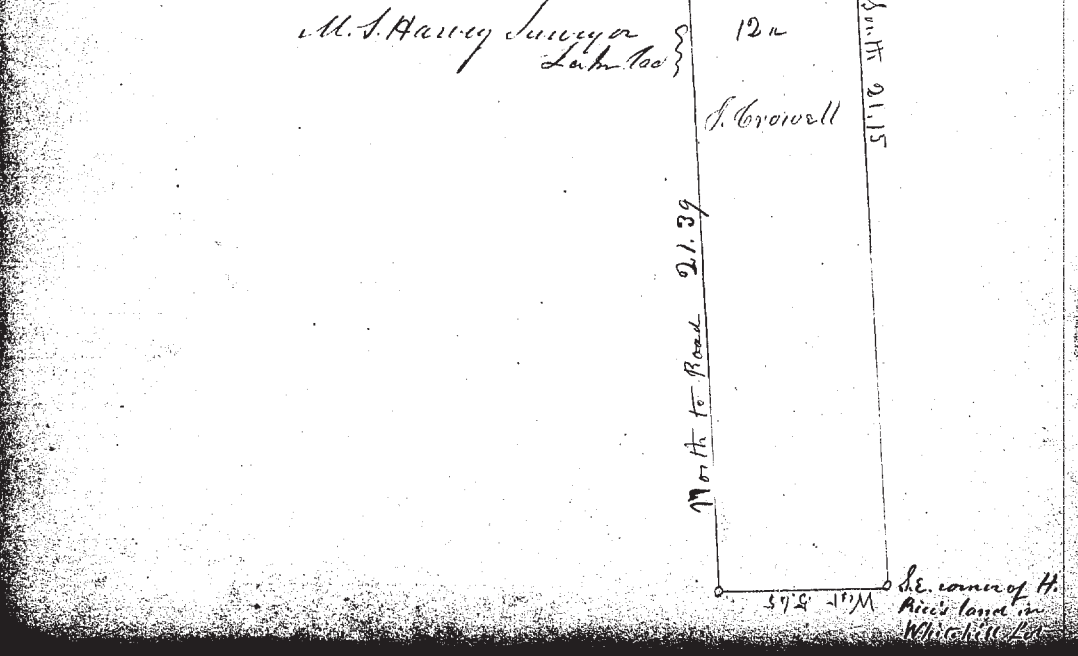 M. S. Harvey Surveyor
Lake Co
12 a
S. Crowell
South 21.15
North to Road 21.39
West 5.65
S.E. corner of H.
Rice's land in
Whitehill Lot